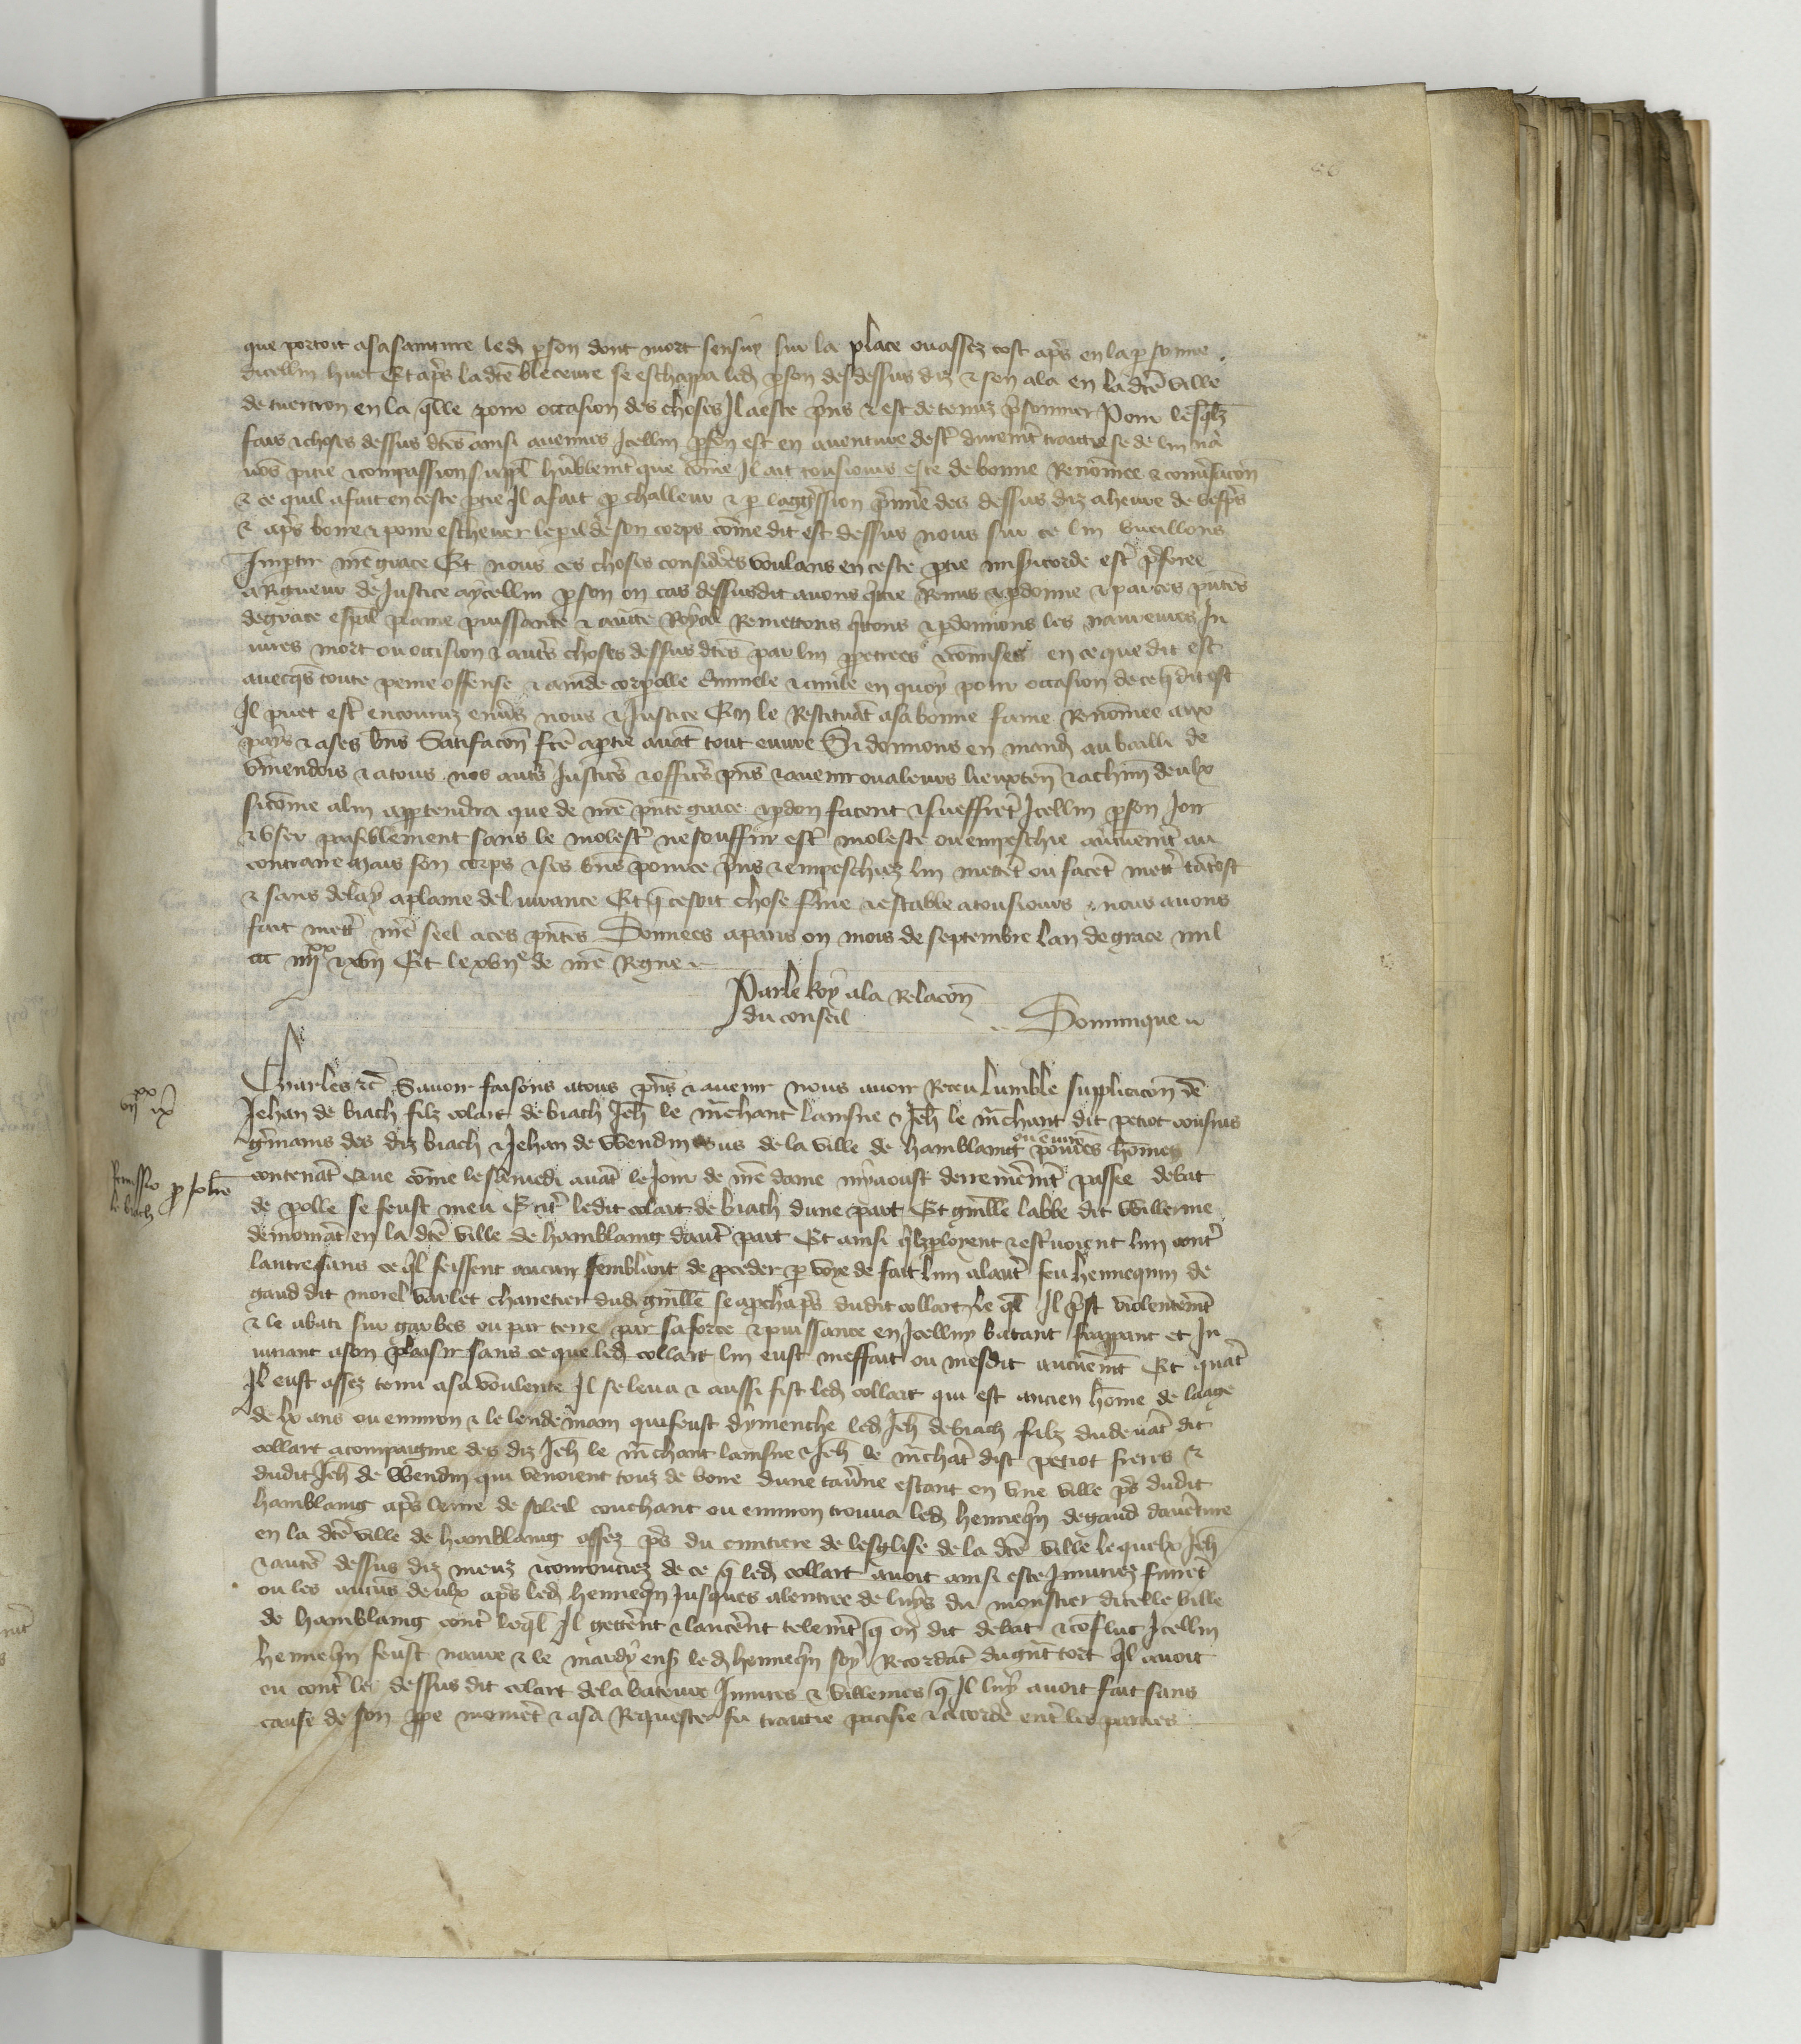 que portoit a sa sainture led p̱son dont mort sensuy sur la place ou assez tost apꝰs en la ꝑsonne
dicellui huet Et apꝰs la dcẽ bleceure se eschappa led p̱son des dessus diz ⁊ sen ala en la dcẽ ville
de en la q̃lle pour occasion des choses Il a este pꝰns ⁊ est detenuz pꝰsonnier Pour lesq̃lz
fais ⁊ choses dessus dcẽs ainsi avenus Icellui p̱son est en aventure destꝰ duremẽt traictie se de lui nã
nos pitie ⁊ compassion suppl̃ hũblemẽt que cõme Il ait tousiours este de bonne Renõmee ⁊ conv̾sacõn
⁊ ce quil a fait en ceste ꝑtie Il a fait ꝑ challeur ⁊ ꝑ laggꝰssion pꝰmiẽ des dessus diz a heure de vespꝰs
⁊ apꝰs boire ⁊ pour eschever le ꝑil de son corps cõme dit est dessus nous sur ce lui vueillons
Impꝑtir nrẽ grace Et nous ces choses considerẽs voulans en ceste ꝑtie misericorde estꝰ pꝰferee
a Rigueur de Justice a ycellui p̱son ou cas dessusdit avons qꝰctie Remis ⁊ ꝑdonne ⁊ par ces pñtes
de grace espãl plaine puissance ⁊ auctẽ Royal Remettons qꝰctons ⁊ ꝑdonnons les navreures In
iures mort ou occision ⁊ autꝰs choses dessus dcẽs par lui ꝑpetrees ⁊ cõmises en ce que dit est
avecqꝰs toute peine offense ⁊ amẽde corporelle Criminele ⁊ civile en quoy pour occasion de ce q̃ dit est
Il puet estꝰ encouruz env̾s nous ⁊ Justice Et le Restituãt a sa bonne fame Renõmee au
pays ⁊ a ses bñs Satisfacõn fcẽ a ꝑtie avãt tout euvre Si donnons en mand au bailli de
v̾mendois ⁊ a tous nos autꝰs Justicꝰs ⁊ officꝰs pñs ⁊ avenir ou a leurs lieuxteñ ⁊ a chũn deulx
sicõme a lui appꝑtendra que de nrẽ pñte grace ⁊ ꝑdon facent ⁊ sueffrẽt Icellui p̱son Joir
⁊ user paisiblement sans le molestꝰ ne souffrir estꝰ moleste ou empeschie aucunemẽt au
contraire mais son corps ⁊ ses bñs pource pꝰns ⁊ empeschiez lui mettẽt ou facẽt mettꝰ tãtost
⁊ sans delay a plaine delivrance Et q̃ ce soit chose ferme ⁊ estable a tousiours nous avons
fait mettꝰ nrẽ seel a ces pñtes Donnees a paris ou mois de septembre lan de grace mil
ccc iiijxx ⁊ xvij Et le xvije de nrẽ Regne
Par le Roy a la Relacõn
du conseil Dominique
Charles ⁊c̃ Savoir faisons a tous pñs ⁊ avenir nous avoir Receu lumble supplicacõn de
vijxx ix
Jehan de biach filz colart de biach Jeh̃ le m̃chant lainsne ⁊ Jeh̃ le m̃chant dit petiot cousins
germains des diz biach ⁊ Jehan de Wendin de la ville de hamblaing ou ẽviron povres hõmes
contenãt Que cõme le samedi avãt le Jour de nrẽ dame myaoust derreniẽremẽt passee debat
Remissio ꝓ Joh̃e
de biach
de ꝑolle se feust meu Entꝰ ledit colart de biach dune part Et guill̃e labbe dit Willerme
demourãt en la dcẽ ville de hamblaing dautꝰ part Et ainsi qꝰlz ploient ⁊ estrivoient lun contꝰ
lautre sans ce qꝰl feissent aucun semblant de ꝓceder ꝑ voye de fait lun a lautꝰ feu hennequin de
gand dit morel varlet charretier dud guill̃e se apꝰs dudit collart le q̃l Il pꝰst violentemẽt
⁊ le abati sur garbes ou par terre par sa force ⁊ puissance en Icelluy batant frappant et In
iuriant a son plaisir sans ce que led collart lui eust meffait ou mesdit aucunemẽt Et quãt
Il eust assez tenu a sa voulente Il se leva ⁊ aussi fist led collart qui est ancien hõme de laage
de lx ans ou environ ⁊ le lendemain qui feust dymenche led Jeh̃ de biach filz du devãt dit
collart acompaigne des diz Jeh̃ le m̃chant lainsne ⁊ Jeh̃ le m̃chãt dit petiot freres ⁊
dudit Jeh̃ de Wendin qui venoient touz de boire dune tav̾ne estant en une ville pꝰs dudit
hamblaing apꝰs leure de soleil couchant ou environ trouva led henneqꝰn de gand daventure
en la dcẽ ville de hamblaing assez pꝰs du cimitiere de lesglise de la dcẽ ville lequelx Jeh̃
⁊ autꝰs dessus diz meuz ⁊ courouciez de ce q̃ led collart avoit ainsi este Iniuriez suirẽt
ou les aucũs deulx apꝰs led henneqꝰn Jusques a lentree de du monstier dicelle ville
de hamblaing contꝰ leq̃l Il gettẽrent ⁊ lancẽrent telemẽt q̃ ou dit debat ⁊ cõflict Icellui
henneqꝰn feust navre ⁊ le mardy ens̃ led henneqꝰn soy Recordãt du grãt tort qꝰl avoit
eu contꝰ le dessus dit colart de la bateure Iniures ⁊ villenies q̃ Il luy avoit fait sans
cause de son ꝓpe mouvemẽt ⁊ a sa Requeste fu traictie pacifie ⁊ acorde entꝰ les parties